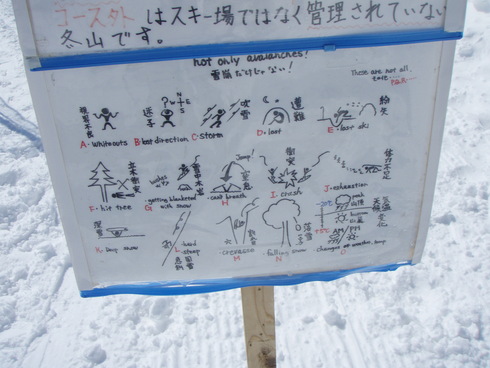 コース外はスキー場ではなく管理されていない
冬山です。
not only avalanches!
雪崩だけじゃない!
These are not all.
take care...
視界不良
迷子
N
W E
S
吹雪
遭難
紛失
A・whiteouts
B・lost direction
C・storm
D・lost
E・lost ski
立木衝突
Jump!
窒息
衝突
体力不足
F・hit tree
G・getting blanketed with snow
H・cant breath
I・crash
J・exhaustion
深雪
急斜面
落雪
-20℃
+5℃
AM PM
天候
変化
K・Deep snow
L・hard steep
M・crevasse
N・falling snow
O・changes of weather, temp